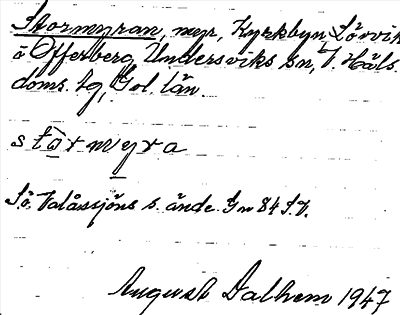 Stormyran, myr, Kyrkbyn, Sörvik
o Offerberg, Undersviks sn, V. Häls.
doms. tg, Gvl. län.
stòrmyra
Sö. Valåssjöns s. ände. Gn 84 S.V.
August Dalhem 1947